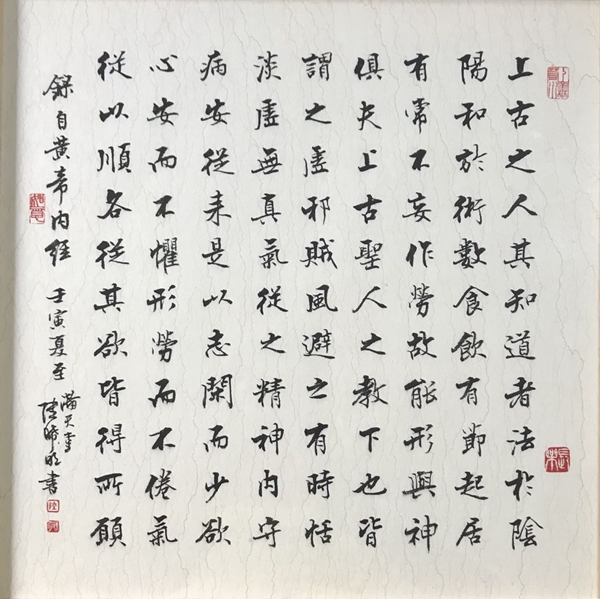 上古之人其知道者法於陰
陽和於術數食飲有節起居
有常不妄作勞故能形與神
俱夫上古聖人之教下也皆
謂之虛邪賊風避之有時恬
淡虛無真氣從之精神内守
病安從来是以志閑而少欲
心安而不懼形勞而不倦氣
從以順各從其欲皆得所願
錄自黄帝内經 壬寅夏至
書